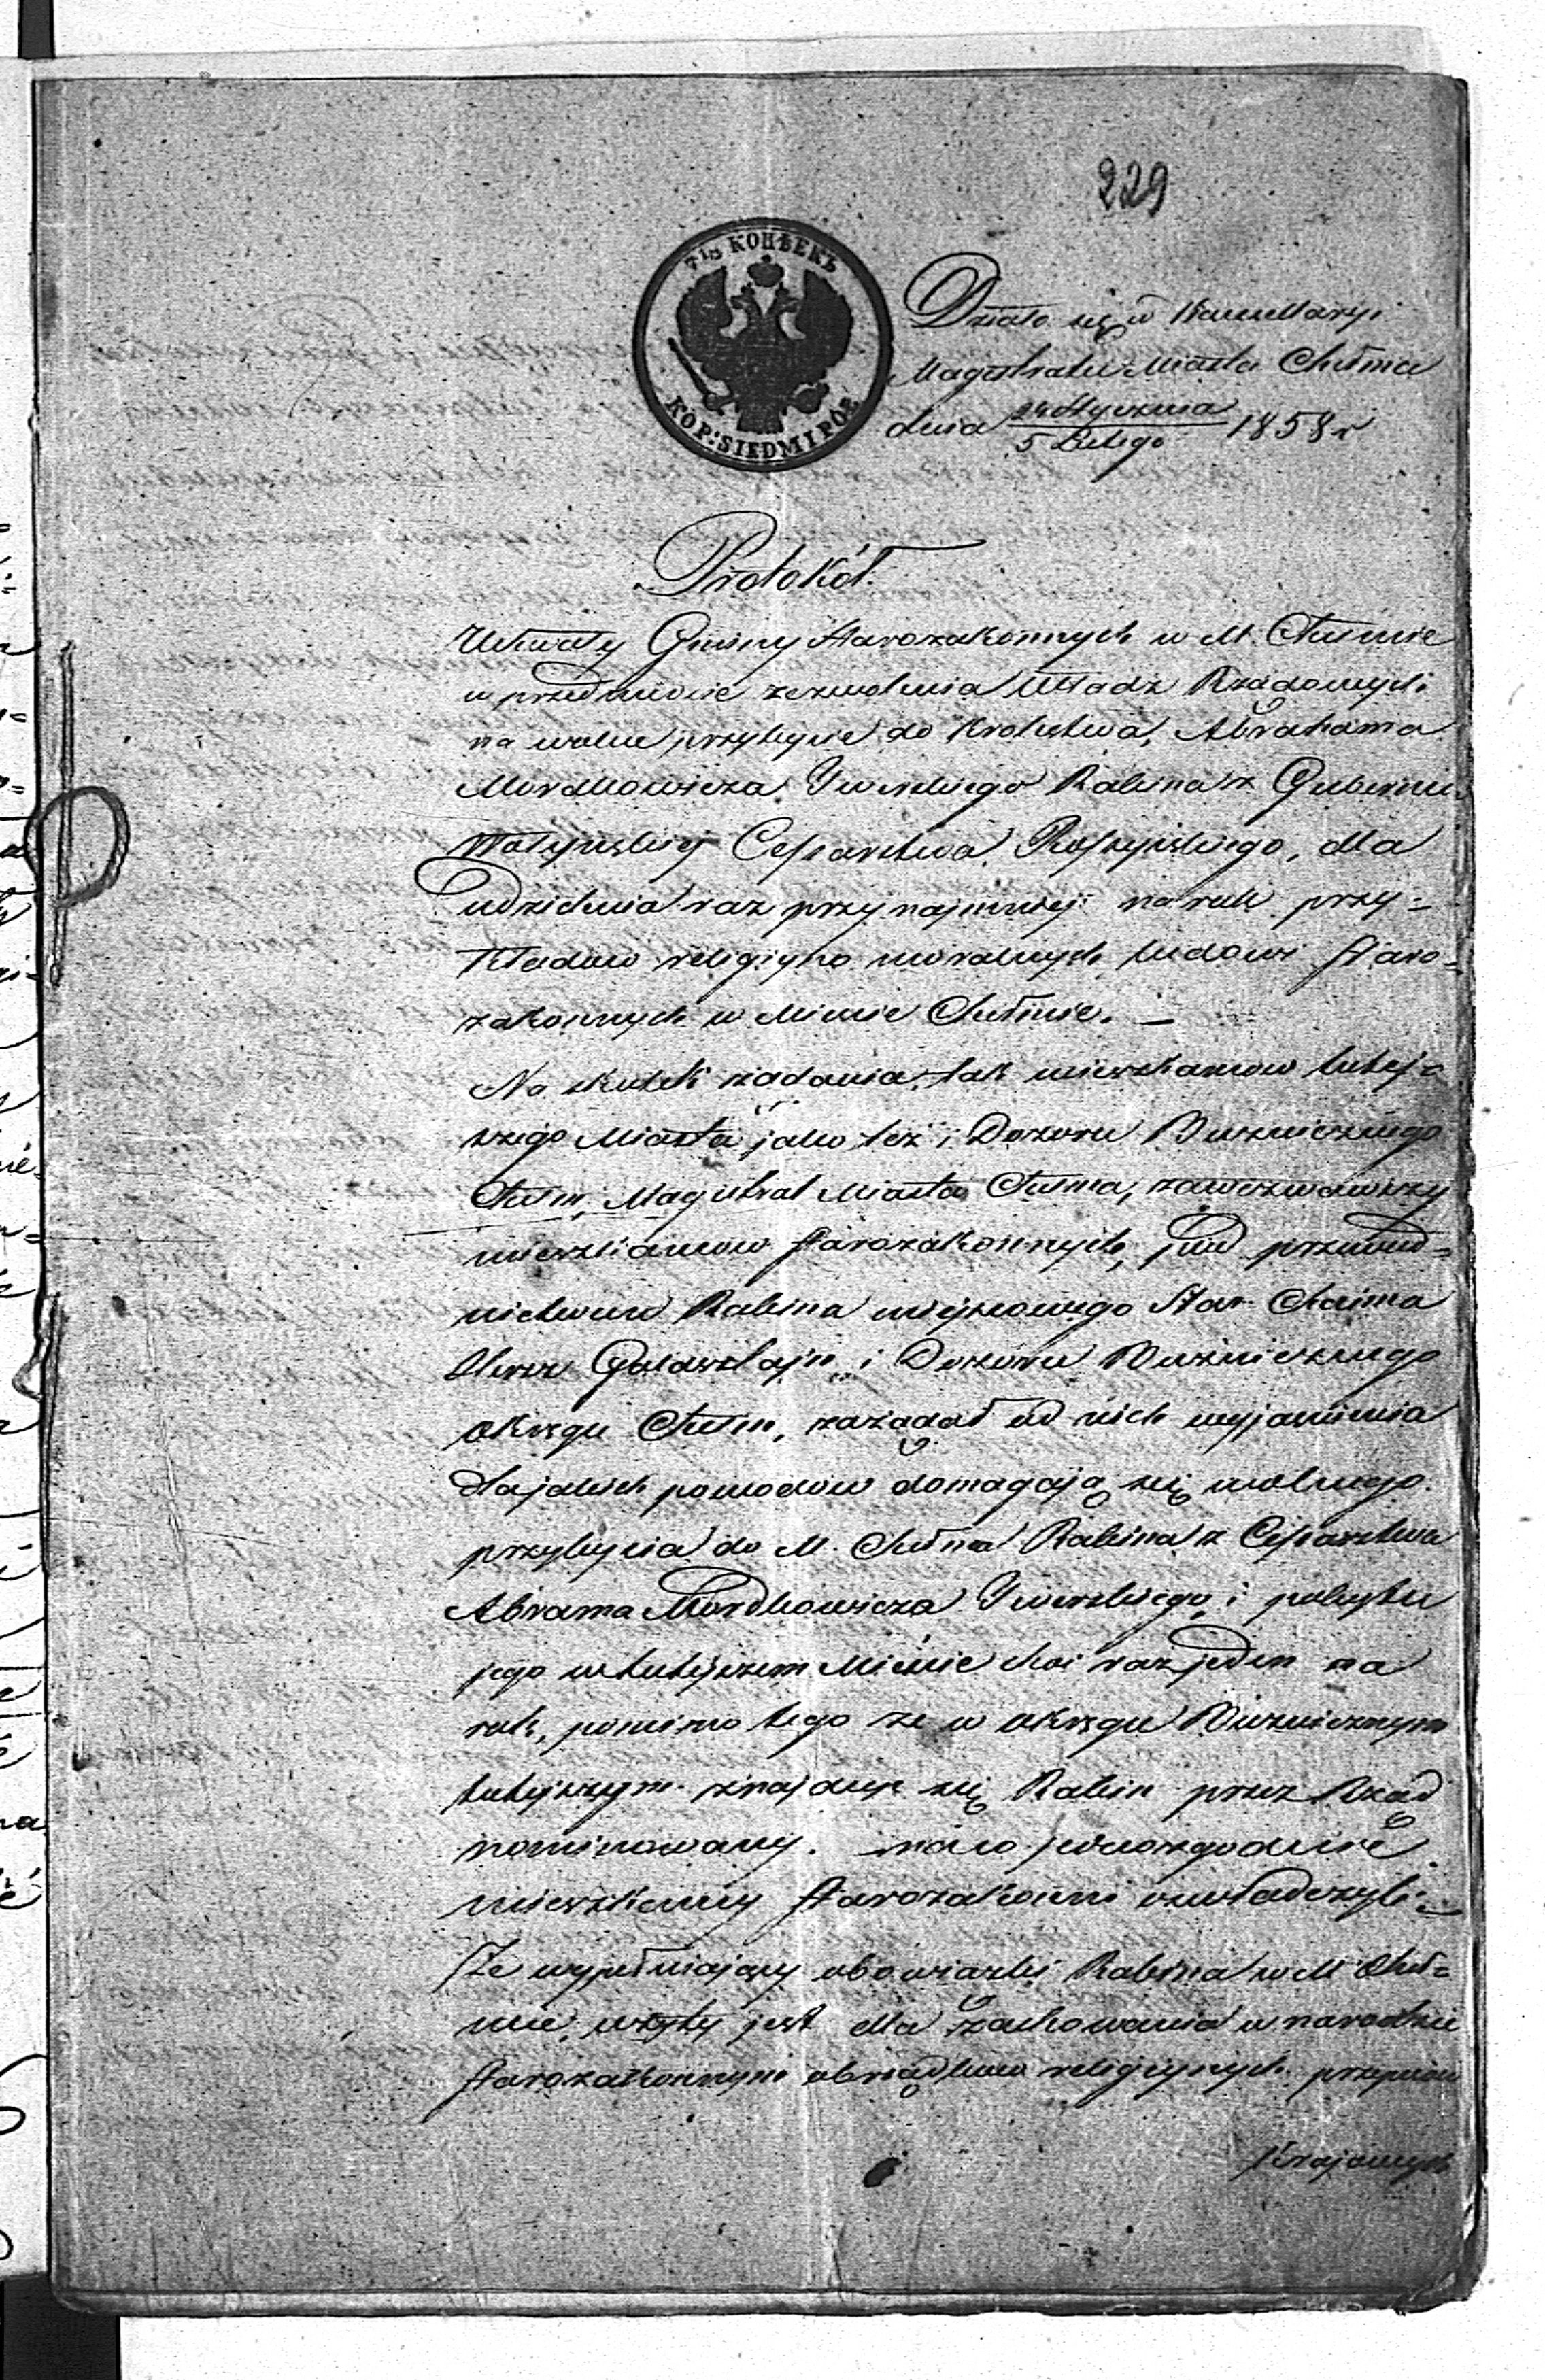 229
7½ КОПѢЕКЪ
KOP: SIEDM I PÓŁ
Działo się w Kancellaryi
Magistratu Miasta Chełma
dnia 24 Stycznia / 5 Lutego 1858 r
Protokół.
Uchwały Gminy Starozakonnych w M. Chełmie
w przedmiocie zezwolenia Władz Rządowych
na wolne przybycie do Krolestwa, Abrahama
Mordkowicza Twerskiego Rabina z Gubernii
Wołyńskiej Cessarstwa Rossyiskiego, dla
udzielenia raz przynajmniej na rok przy-
kładow religijno moralnych ludowi Staro-
zakonnych w Miescie Chełmie. —
Na skutek żądania tak mieszkancow tutej-
szego Miasta jako też i Dozoru Bużniczego
Chełm, Magistrat Miasta Chełma, zawezwawszy
mieszkancow Starozakonnych, pod przewod-
nictwem Rabina miejscowego Star Chaima
Hersz Goldsztajn i Dozoru Bużniczego
Okręgu Chełm, zażądał od nich wyjasnienia
dla jakich powodow domagają się wolnego
przybycia do M. Chełma Rabina z Cessarstwa
Abrama Mordkowicza Twerskiego i pobytu
jego w tutejszem Miescie choc raz jeden na
rok, pomimo tego że w okręgu Bużnicznym
tutejszym znajduje się Rabin przez Rząd
nominowany. na co jednozgodnie
mieszkancy Starozakonni oswiadczyli:
Że wypełniający obowiązki Rabina w M Cheł-
mie, jest dla zachowania w narodzie
Starozakonnym obrządkow religijnych przepisow
Krajowych